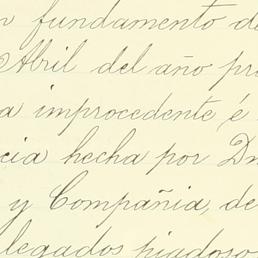 fundamento de
Abril del año pr
a improcedente é
cia hecha por Dn
y Compañia, de
legados piadoso